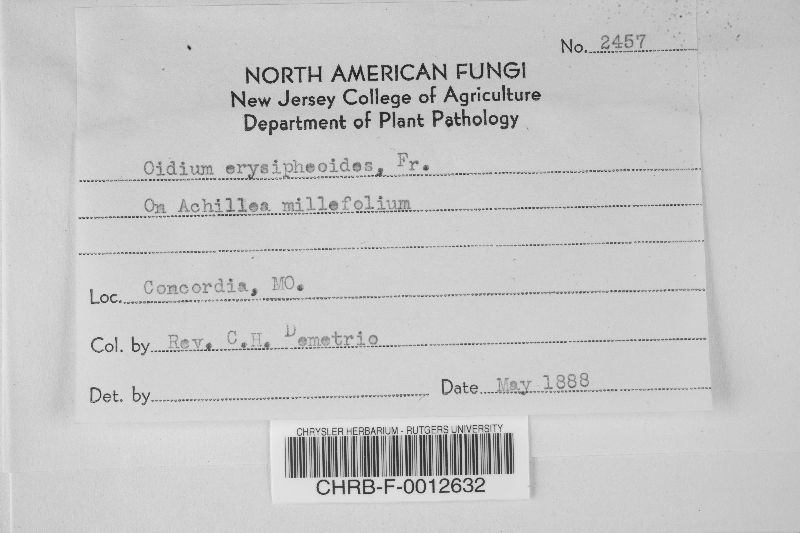 No. 2457
NORTH AMERICAN FUNGI
New Jersey College of Agriculture
Department of Plant Pathology
Oidium erysipheoides, Fr.
On Achillea millefolium
Loc. Concordia, MO.
Col. by Rev. C.H. Demetrio
Det. by
Date May 1888
CHRYSLER HERBARIUM - RUTGERS UNIVERSITY
CHRB-F-0012632